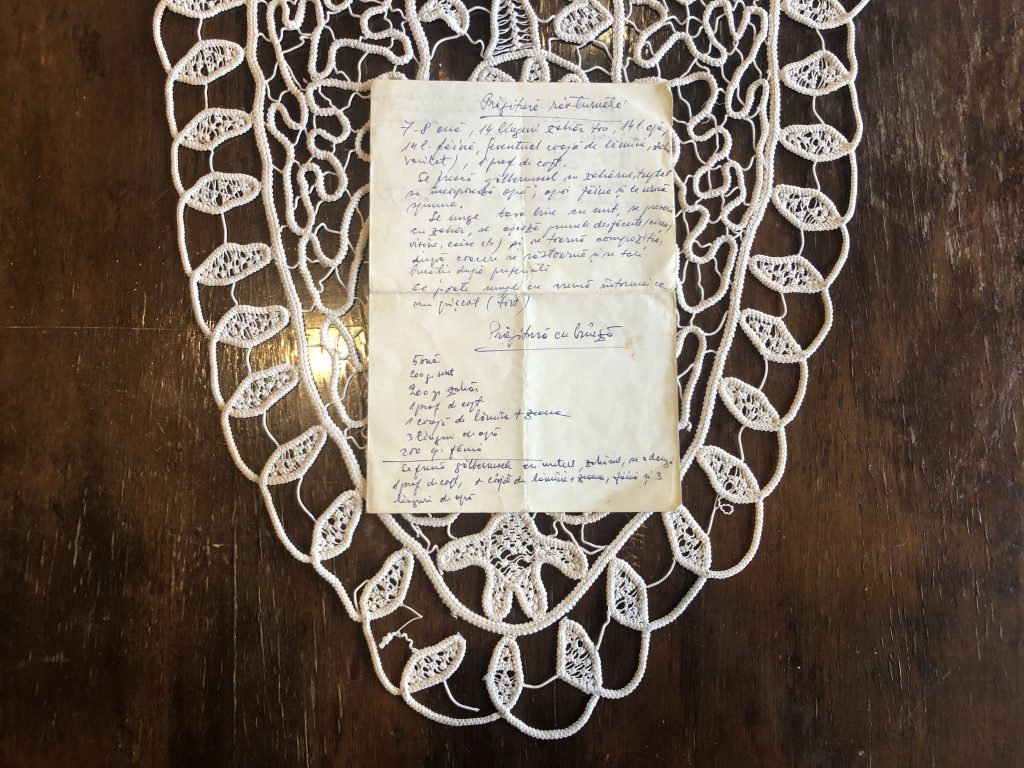 Prăjitură răsturnată
7-8 ouă, 14 linguri zahăr tos, 14 l. apă,
14 l. făină, (eventual coajă de lămîie, zahăr
vanilat), 1 praf de copt.
Se freacă gălbenușul cu zahărul, treptat
se încorporează apă, apoi făina și la urmă
spuma.
Se unge tava bine cu unt, se presară
cu zahăr, se așează prunele desfăcute (cireșe,
vișine, caise etc) și se toarnă compoziția,
după coacere se răstoarnă și se taie
bucăți după preferință
Se poate umple cu cremă
(tort)
Prăjitură cu brînză
5 ouă
200 g. unt
200 g. zahăr
1 praf de copt
1 coajă de lămîie + zeama
3 linguri de apă
200 g. făină
Se freacă gălbenușele cu untul, zahărul, se adaugă
1 praf de copt, o coajă de lămîie + zeama, făină și 3
linguri de apă